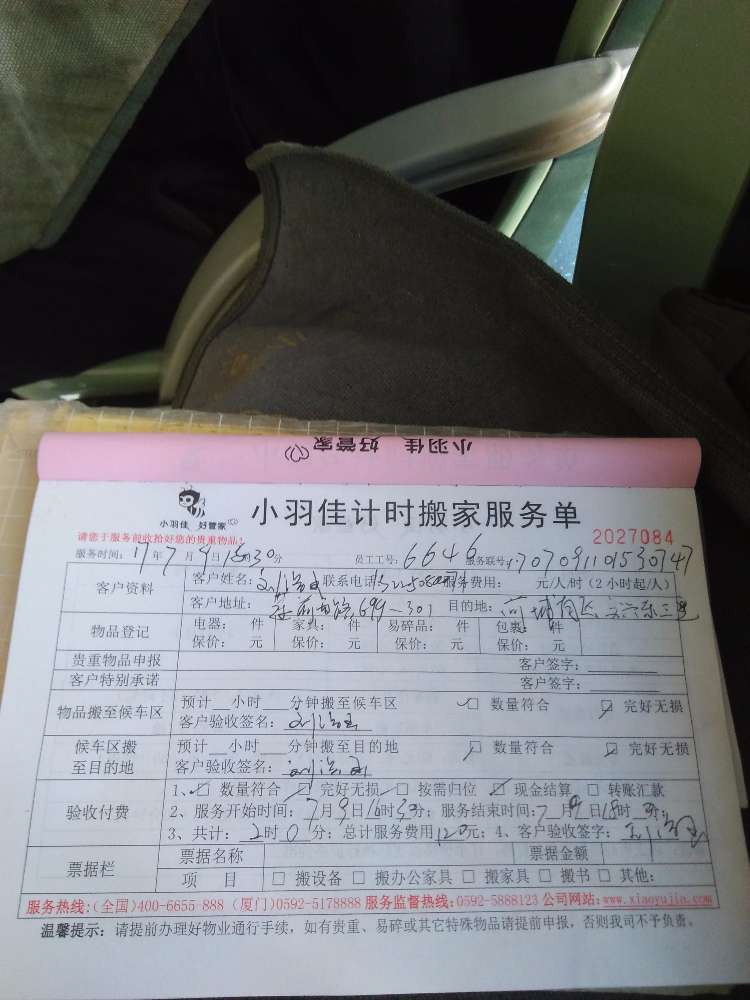 小羽佳 好管家
小羽佳 好管家
小羽佳计时搬家服务单
请您于服务前收拾好您的贵重物品!
2027084
服务时间: 17年7月9日 时30分 员工工号: 6646 服务联号:
客户资料 客户姓名: 联系电话 服务费用: 元/人/时 (2小时起/人)
客户地址: 699-301 目的地:
物品登记 电器: 件 家具: 件 易碎品: 件 包裹: 件
保价: 元 保价: 元 保价: 元 保价: 元
贵重物品申报 客户签字:
客户特别承诺 客户签字:
物品搬至候车区 预计__小时___分钟搬至候车区 数量符合 完好无损
客户验收签名:
候车区搬至目的地 预计__小时___分钟搬至目的地 数量符合 完好无损
客户验收签名:
验收付费 1、 数量符合 完好无损 按需归位 现金结算 转账汇款
2、服务开始时间: 7月9日16时30分; 服务结束时间: 7月9日18时 分;
3、共计: 2时0分; 总计服务费用120元; 4、客户验收签字:
票据栏 票据名称 票据金额
项 目 搬设备 搬办公家具 搬家具 搬书 其他:
服务热线:(全国)400-6655 888 (厦门)0592-5178888 服务监督热线:0592-5888123 公司网站:www.xiaoyujia.com
温馨提示: 请提前办理好物业通行手续, 如有贵重、易碎或其它特殊物品请提前申报, 否则我司不予负责。